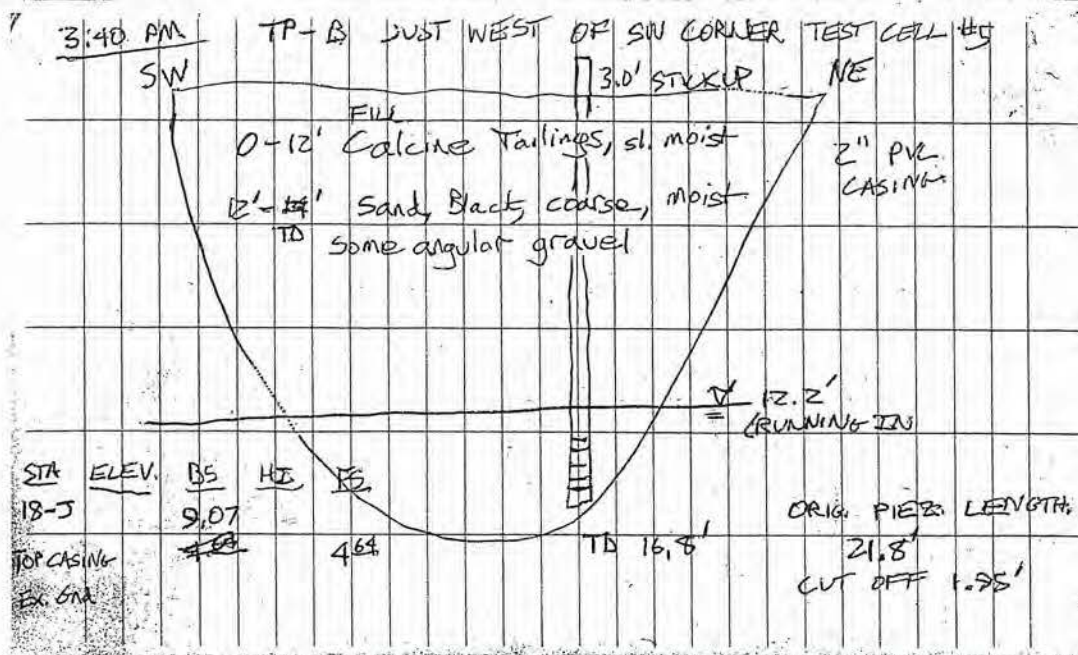 3:40 PM TP-B JUST WEST OF SW CORNER TEST CELL #5
SW 3.0' STICKUP NE
FILL
0-12' Calcine Tailings, sl. moist
2" PVC
CASING
12'- ' Sand, Black, coarse, moist
TD
some angular gravel
12.2'
RUNNING IN
STA ELEV. BS HI FS
18-J 9.07
TOP CASING 4.64 4.64
Ex. Gnd
TD 16.8'
ORIG. PIEZ. LENGTH.
21.8'
CUT OFF 1.95'